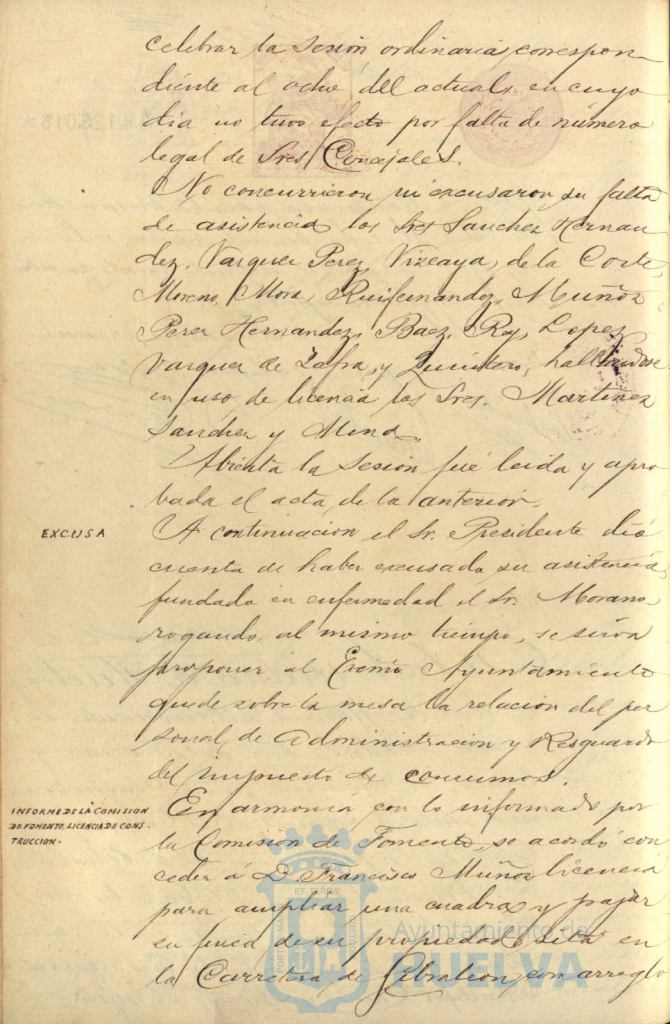 celebrar la sesión ordinaria, correspon
diente al ocho del actual, en cuyo
dia no tuvo efecto por falta de número
legal de Sres Concejales.
No concurrieron ni excusaron su falta
de asistencia los Sres Sanchez Hernan
dez, Vazquez Perez, Vizcaya, de la Corte,
Moreno, Mora, Ruifernandez, Muñoz
Perez Hernandez, Baez, Rey, Lopez,
Vazquez de Zafra, y Quintero, hallandose
en uso de licencia los Sres. Martinez
Sanchez y Mena.
Abierta la sesión fué leida y apro
bada el acta de la anterior.
EXCUSA
A continuacion el Sr. Presidente dió
cuenta de haber excusado su asistencia,
fundado en enfermedad el Sr. Morano,
rogando, al mismo tiempo, se sirva
proponer al Excmo Ayuntamiento
quede sobre la mesa la relación del per
sonal de Administracion y Resguardo
del impuesto de consumos.
INFORME DE LA COMISION
DE FOMENTO, LICENCIA DE CONS-
TRUCCION.
En armonia con lo informado por
la Comisión de Fomento, se acordó con
ceder á D. Francisco Muñoz licencia
para ampliar una cuadra y pajar
en finca de su propiedad sita en
la Carretera de Gibraleon, con arreglo
Ayuntamiento de
HUELVA